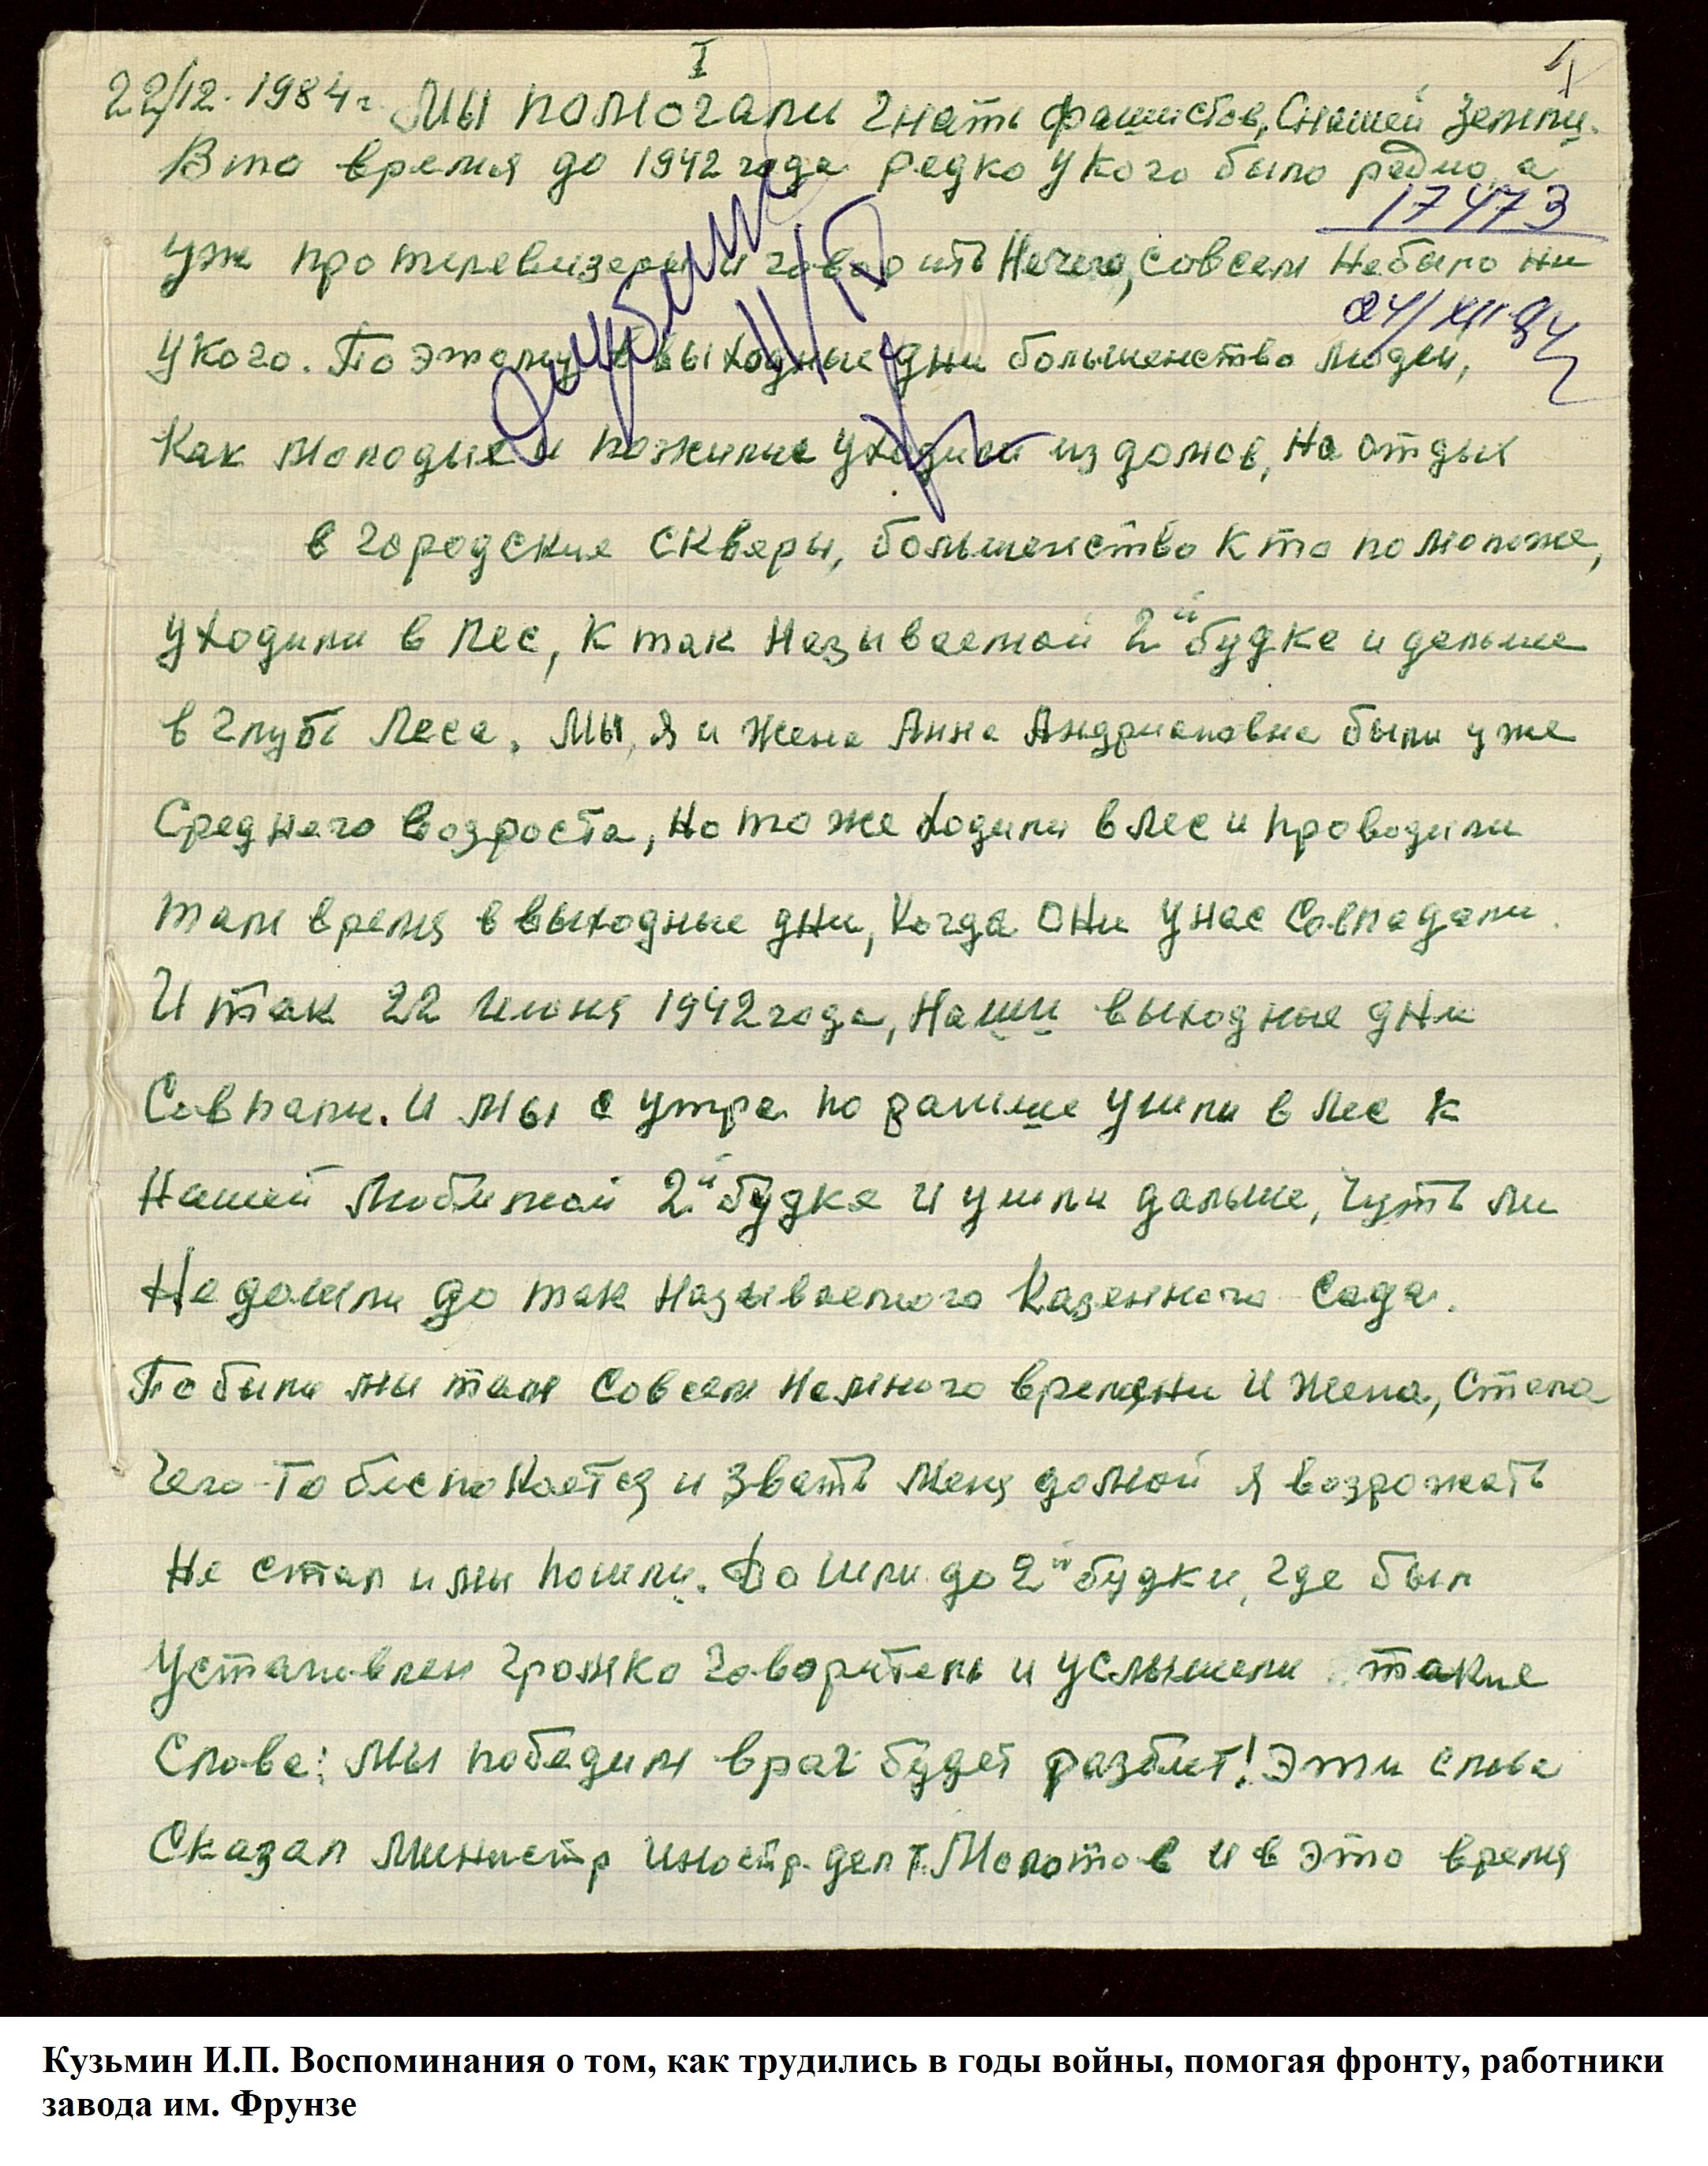 I
1
22/12. 1984г. Мы помогали гнать фашистов, с нашей земли.
В то время до 1942 года редко у кого было радио, а
17473
уж про телевизеры и говорить нечего, совсем небыло ни
24/XII 84
у кого. По этому в выходные дни большенство людей,
Как молодые и пожилые уходили из домов, на отдых
в городские скверы, большенство кто помоложе,
уходили в лес, к так называемой 2й будке и дальше
в глубь леса. Мы, я и жена Анна Андриановна были уже
Среднего возроста, но тоже ходили в лес и проводили
там время в выходные дни, когда они у нас совпадали.
И так 22 июня 1942 года, наши выходные дни
Совпали. И мы с утра по раньше ушли в лес к
нашей любимой 2й будке и ушли дальше, чуть ли
не дошли до так называемого Казенного сада.
Побыли мы там совсем немного времени и жена, стала
чего-то беспокоется и звать меня домой я возрожать
не стал и мы пошли. Дошли до 2й будки, где был
установлен громко говоритель и услышели такие
Слова: мы победим враг будет разбит! Эти слова
Сказал министр иностр. дел т. Молотов и в это время
Кузьмин И.П. Воспоминания о том, как трудились в годы войны, помогая фронту, работники
завода им. Фрунзе